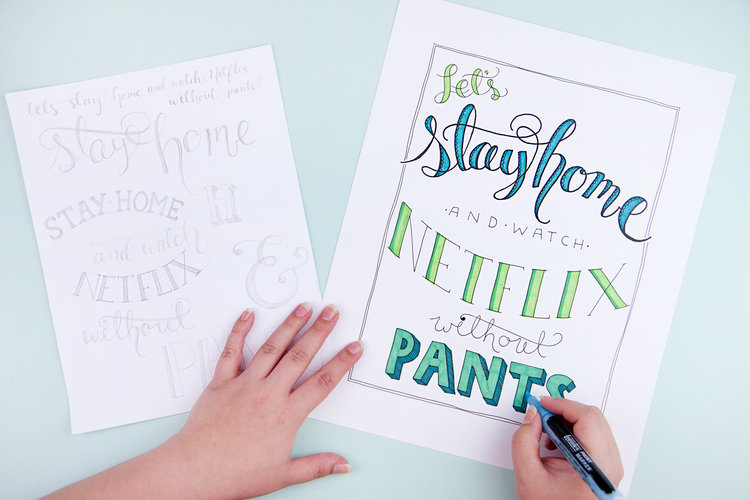 Let's stay home and watch Netflix
without pants
stay home
STAY·HOME
H
and watch
NETFLIX
&
without
P
Let's
stay home
·AND·WATCH·
NETFLIX
without
PANTS